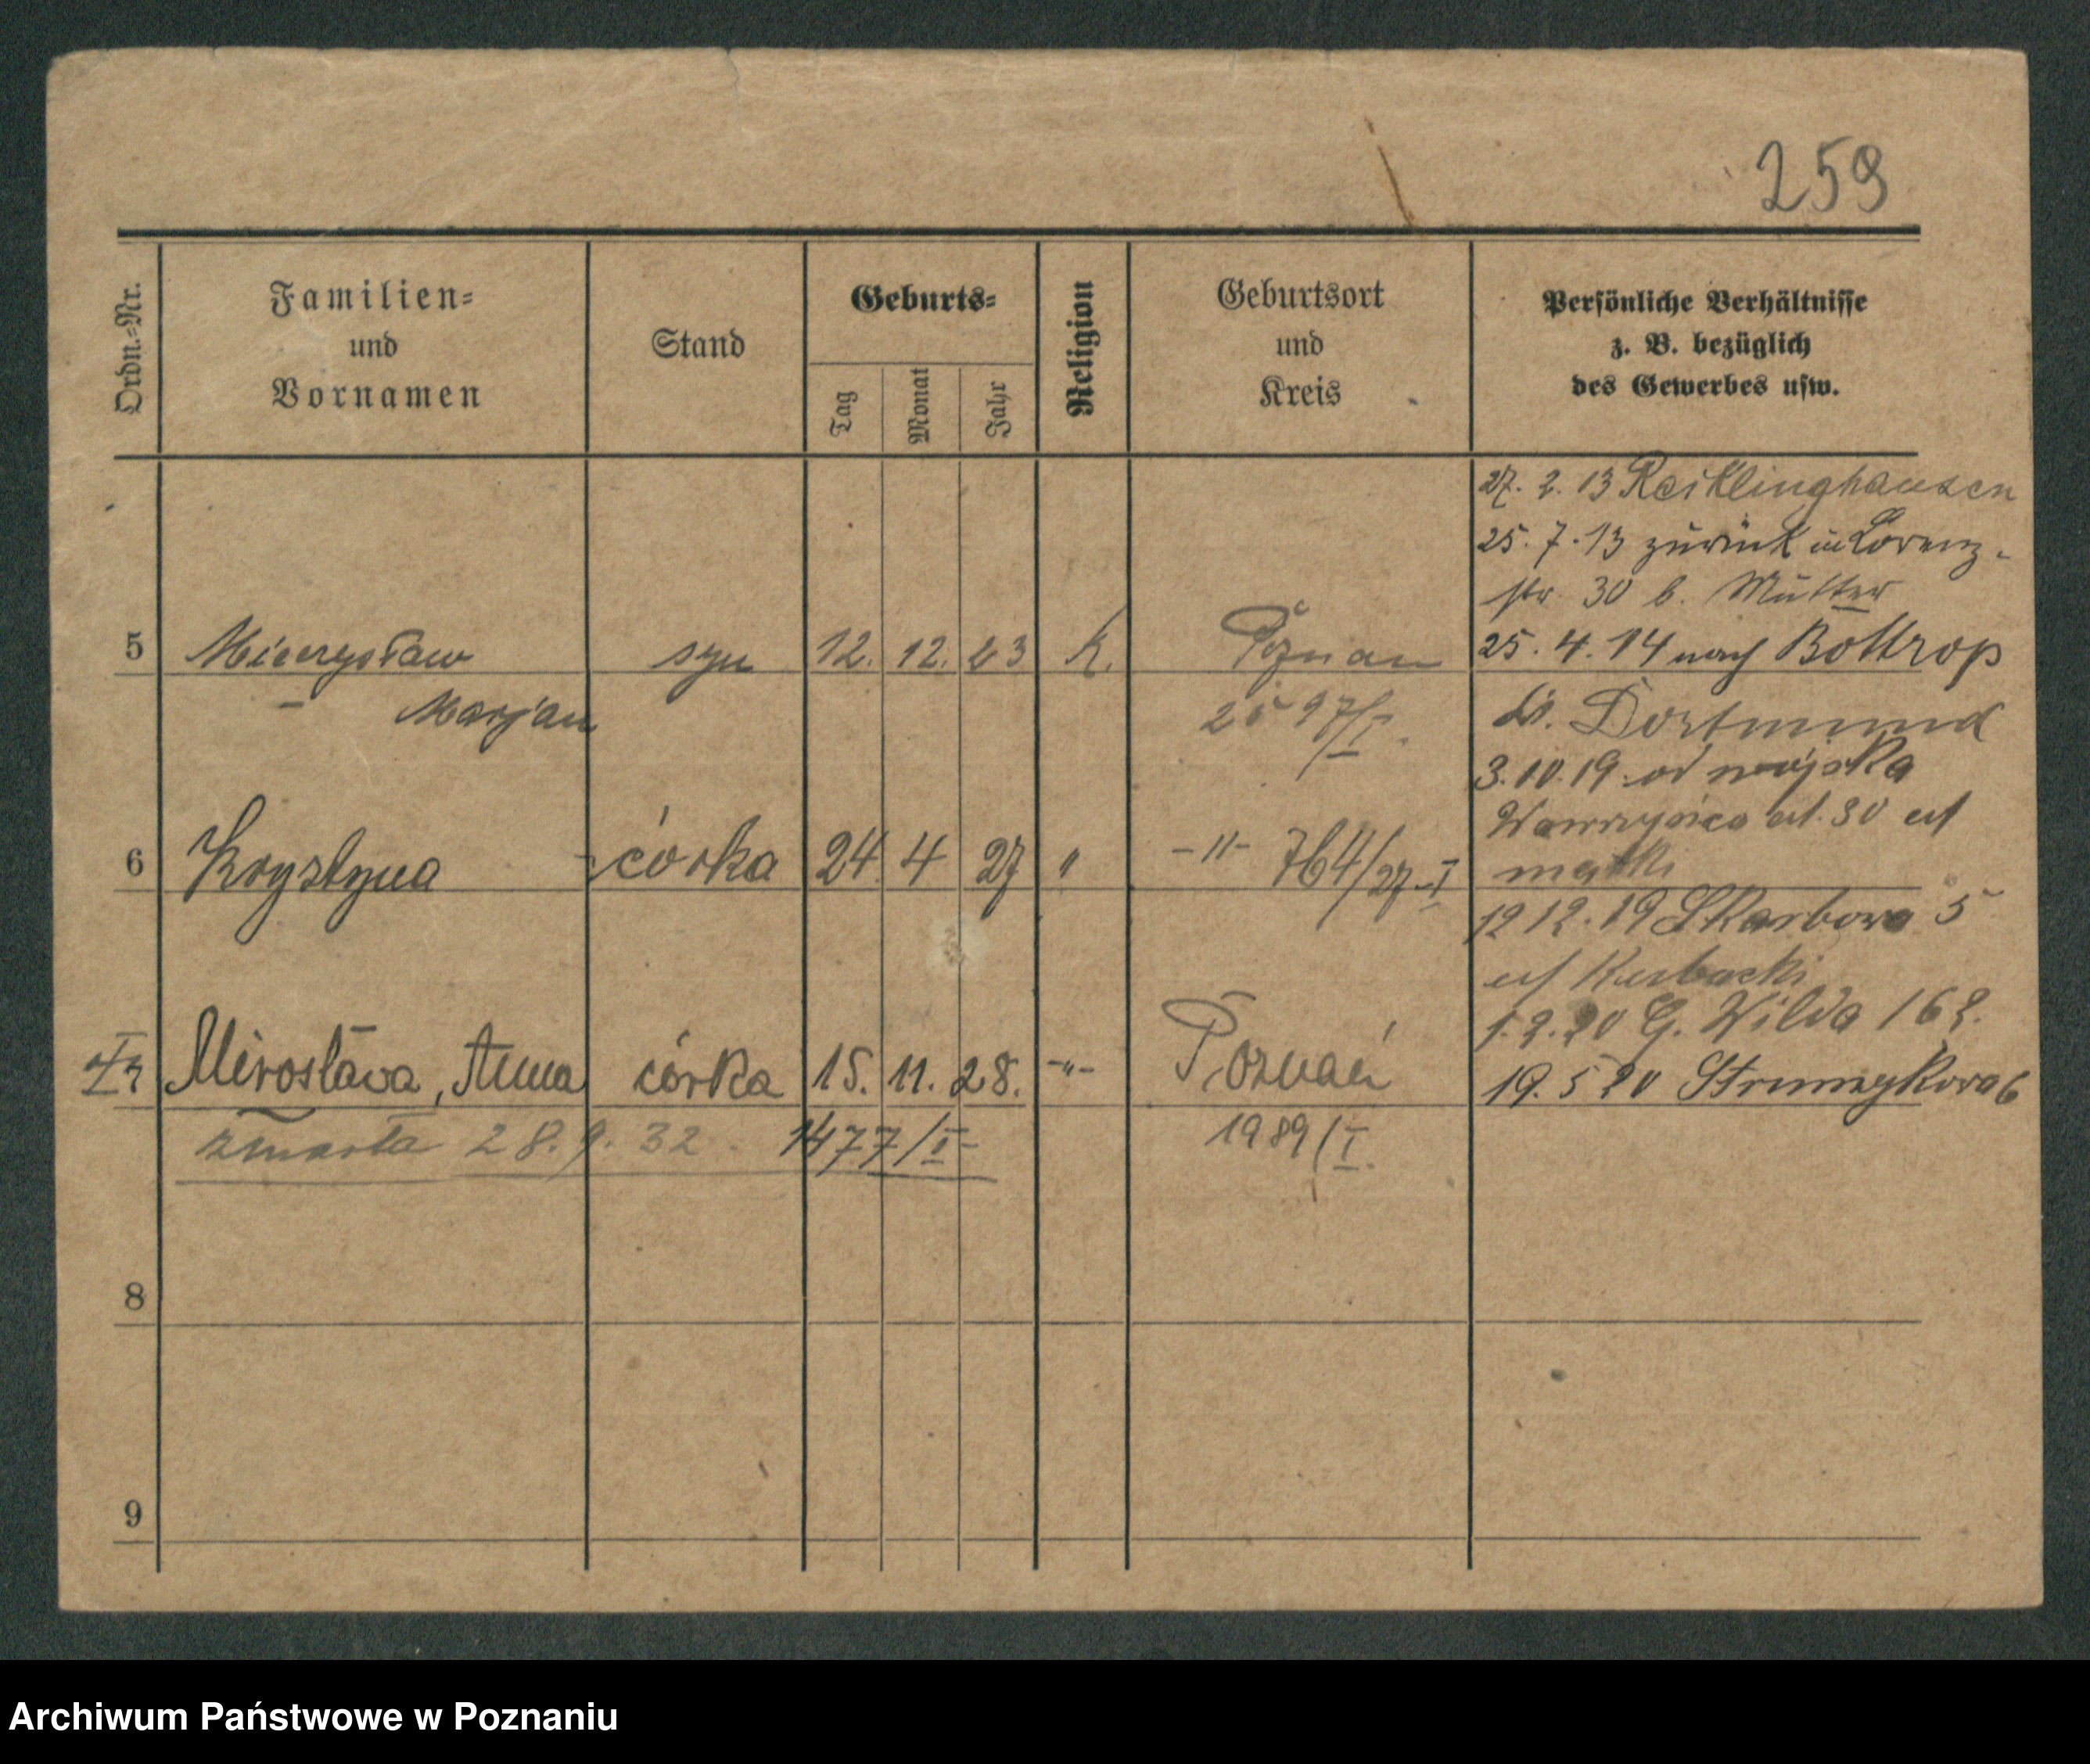 259
Ordn.=Nr.
Familien=
und
Vornamen
Stand
Geburts=
Tag
Monat
Jahr
Religion
Geburtsort
und
Kreis
Persönliche Verhältnisse
z. B. bezüglich
des Gewerbes usw.
27. 2. 13 Reiklinghausen
25. 7. 13 zurück in Lorenz-
str. 30 b. Mutter
5 Mieczysław syn 12. 12. 23 K. Poznań
25. 4. 14 nach Bottrop
Marjan 2597/I.
Kr. Dortmund
3. 10. 19 od wojska
Wawrzyńca 30 u/
matki
6 Krystyna córka 24 4 27 " -"- 764/27-I
12 12. 19 Skarbowa 5
u/ Kubacki
1. 2. 20 G. Wilda 162.
Mirosława, Anna córka 15. 11. 28. -"- Poznań
19. 5 20 Strumykowa 6
zmarła 28. 9. 32. 1477/I- 1989/I.
8
9
Archiwum Państwowe w Poznaniu